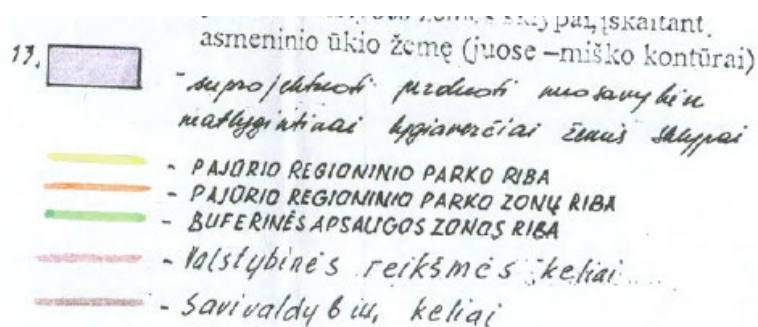 sklypai, įskaitant
asmeninio ūkio žemę (juose –miško kontūrai)
13.
- suprojektuoti parduoti nuosavybėn
neatlygintinai lygiaverčiai žemės sklypai
- PAJŪRIO REGIONINIO PARKO RIBA
- PAJŪRIO REGIONINIO PARKO ZONŲ RIBA
- BUFERINĖS APSAUGOS ZONOS RIBA
- Valstybinės reikšmės keliai
- Savivaldybių keliai